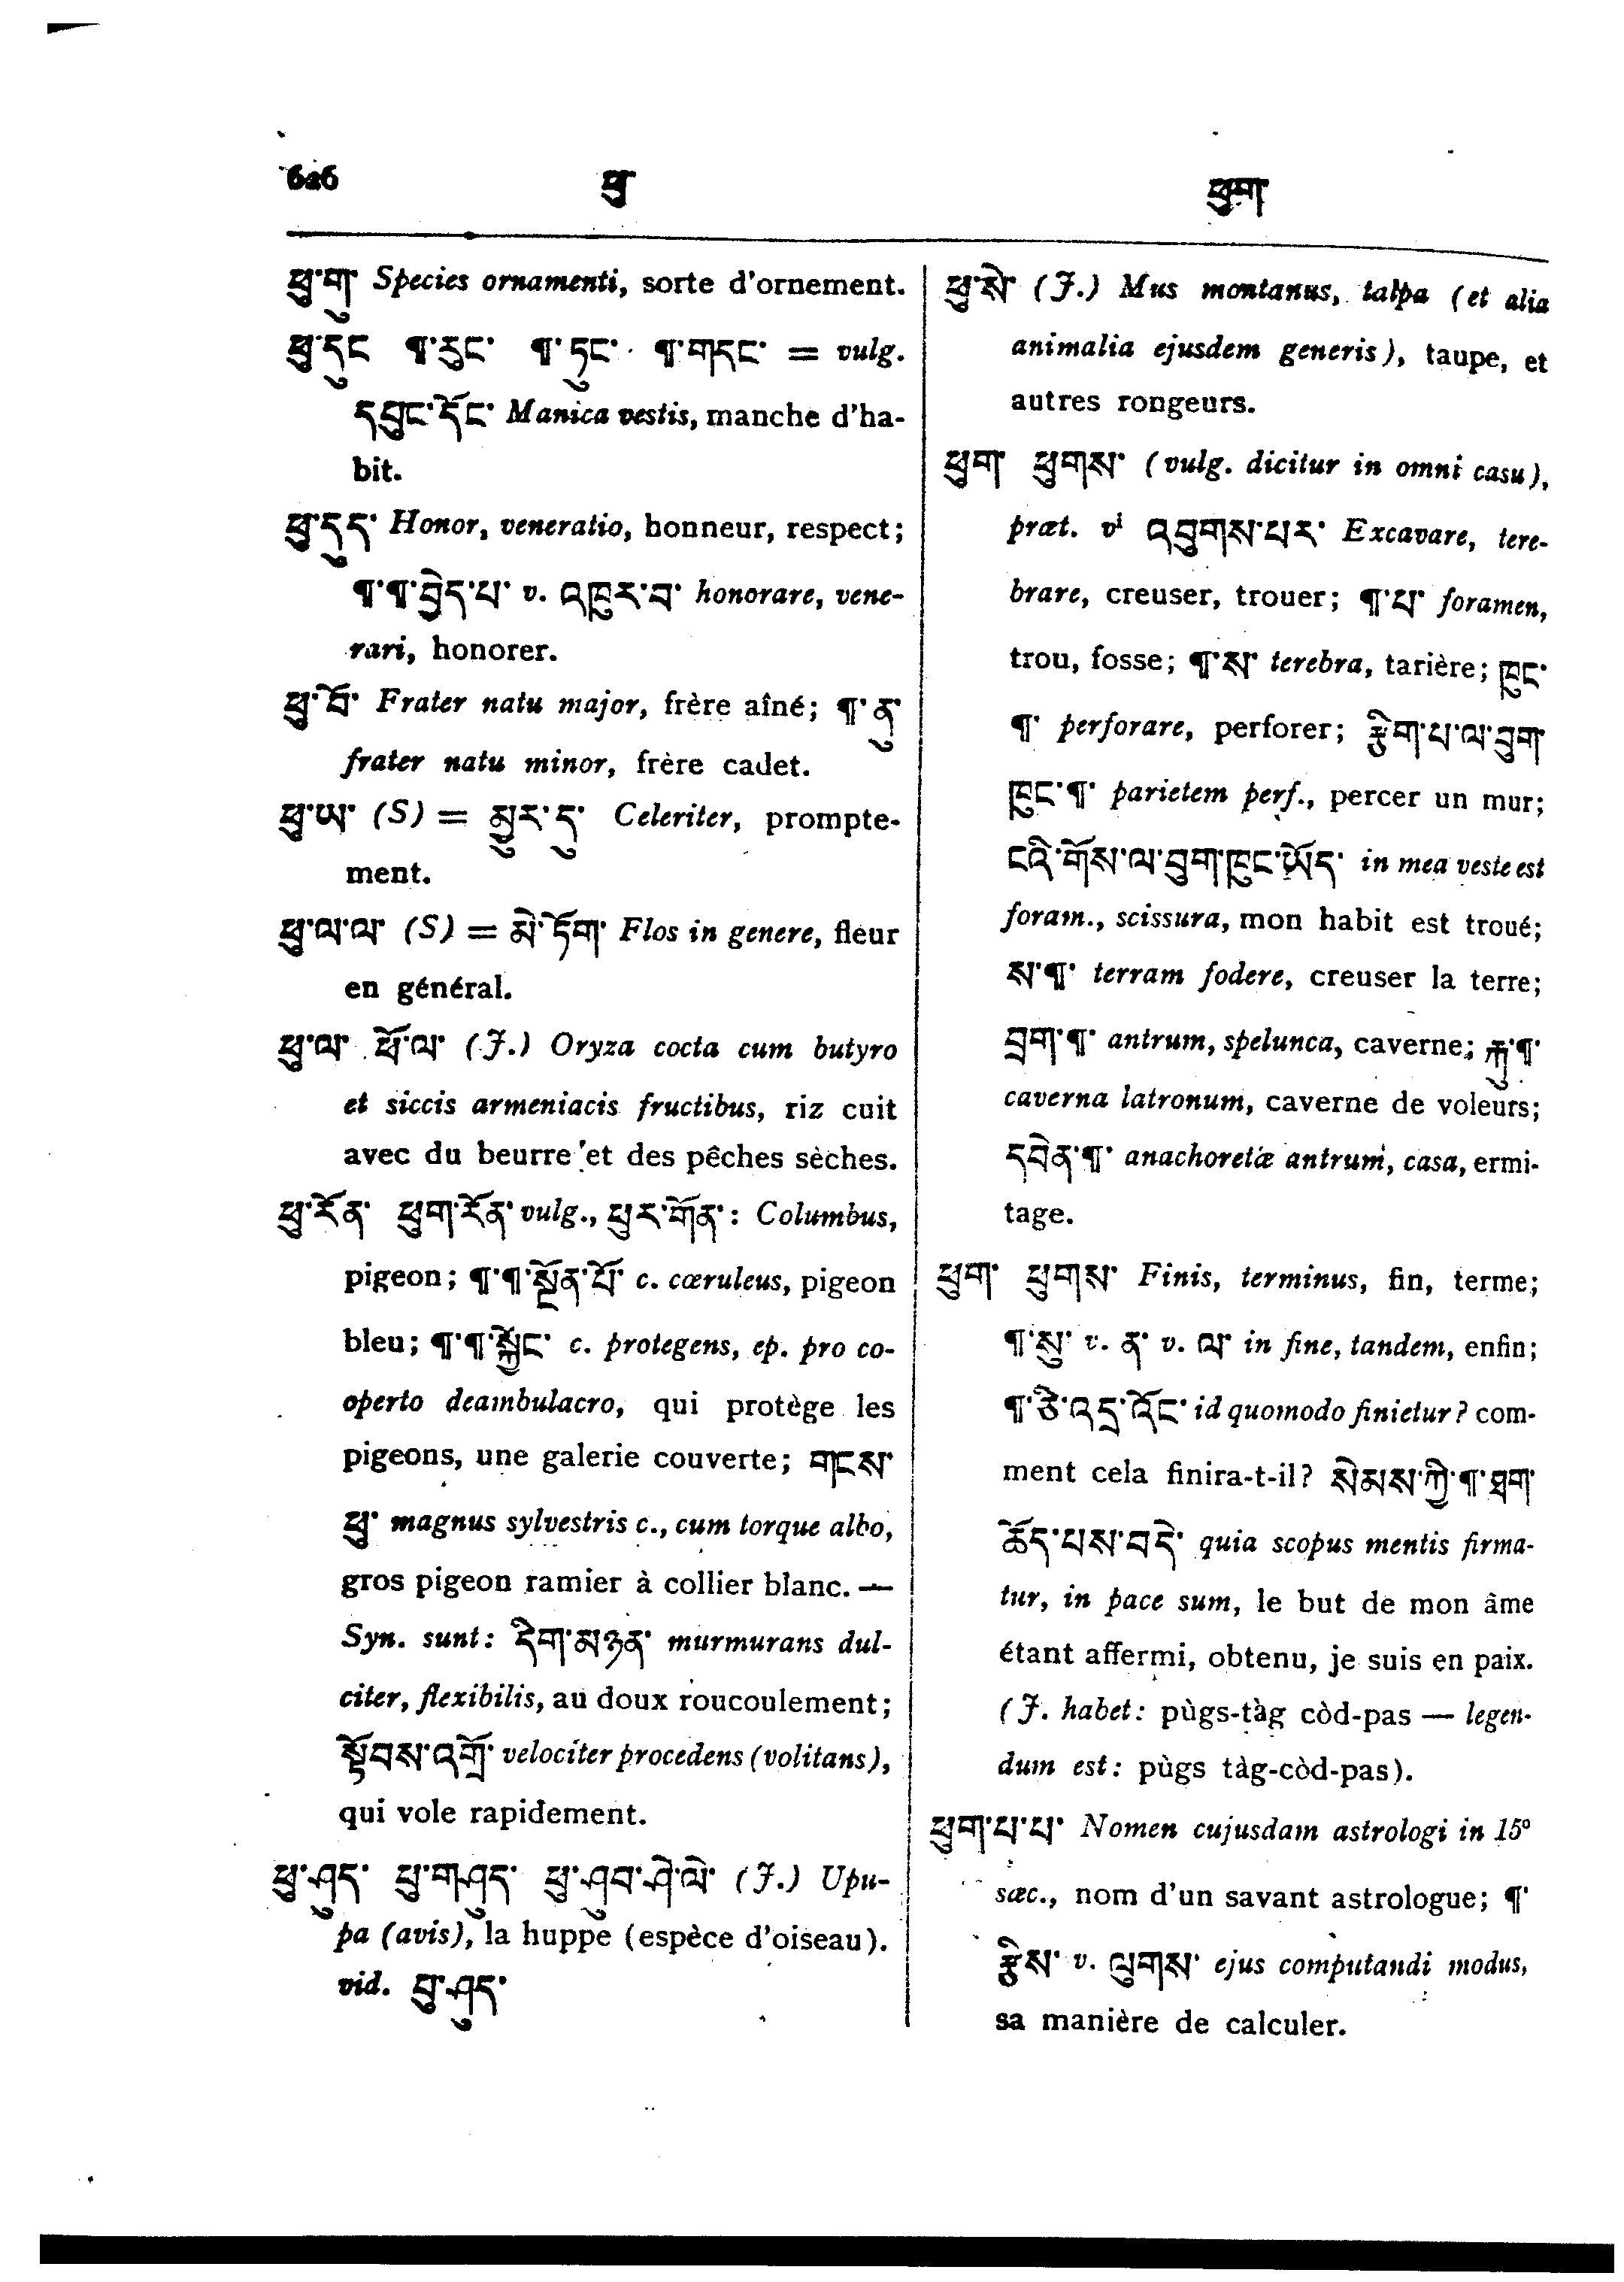 626 ཕུ་ ཕུག་
ཕུ་གུ་ Species ornamenti, sorte d'ornement.
ཕུ་དུང ¶་རུང་ ¶་ཏུང་ ¶་གདང་ = vulg.
དཔུང་དོང་ Manica vestis, manche d'ha-
bit.
ཕུ་དུད་ Honor, veneratio, honneur, respect;
¶་¶་བྱེད་པ་ v. འཁུར་བ་ honorare, vene-
rari, honorer.
ཕུ་བོ་ Frater natu major, frère aîné; ¶་ནུ་
frater natu minor, frère cadet.
ཕུ་ཡ་ (S) = མྱུར་དུ་ Celeriter, prompte-
ment.
ཕུ་ལ་ལ་ (S) = མེ་ཏོག་ Flos in genere, fleur
en général.
ཕུ་ལ་ ཕོ་ལ་ (J.) Oryza cocta cum butyro
et siccis armeniacis fructibus, riz cuit
avec du beurre et des pêches sèches.
ཕུ་རོན་ ཕུག་རོན་ vulg., ཕུར་གོན་: Columbus,
pigeon; ¶་¶་སྔོན་པོ་ c. cœruleus, pigeon
bleu; ¶་¶་སྐྱོང་ c. protegens, ep. pro co-
operto deambulacro, qui protège les
pigeons, une galerie couverte; གངས་
ཕུ་ magnus sylvestris c., cum torque albo,
gros pigeon ramier à collier blanc. —
Syn. sunt: དིག་མཉན་ murmurans dul-
citer, flexibilis, au doux roucoulement;
སྟོབས་འགྲོ་ velociter procedens (volitans),
qui vole rapidement.
ཕུ་ཤུད་ ཕུ་གཤུད་ ཕུ་ཤུབ་ཤེ་ལེ་ (J.) Upu-
pa (avis), la huppe (espèce d'oiseau).
vid. པུ་ཤུད་
ཕུ་སེ་ (J.) Mus montanus, talpa (et alia
animalia ejusdem generis), taupe, et
autres rongeurs.
ཕུག་ ཕུགས་ (vulg. dicitur in omni casu),
præt. vi འབུགས་པར་ Excavare, tere-
brare, creuser, trouer; ¶་པ་ foramen,
trou, fosse; ¶་ས་ terebra, tarière; ཁུང་
¶་ perforare, perforer; རྩིག་པ་ལ་བུག་
ཁུང་¶་ parietem perf., percer un mur;
ངའི་གོས་ལ་བུག་ཁུང་ཡོད་ in mea veste est
foram., scissura, mon habit est troué;
ས་¶་ terram fodere, creuser la terre;
བྲག་¶་ antrum, spelunca, caverne; རྐུ་¶་
caverna latronum, caverne de voleurs;
དབེན་¶་ anachoretæ antrum, casa, ermi-
tage.
ཕུག་ ཕུགས་ Finis, terminus, fin, terme;
¶་སུ་ v. ན་ v. ལ་ in fine, tandem, enfin;
¶་ཅི་འདྲ་འོང་ id quomodo finietur? com-
ment cela finira-t-il? སེམས་ཀྱི་¶་ཐག་
ཆོད་པས་བདེ་ quia scopus mentis firma-
tur, in pace sum, le but de mon âme
étant affermi, obtenu, je suis en paix.
(J. habet: pùgs-tàg còd-pas — legen-
dum est: pùgs tàg-còd-pas).
ཕུག་པ་པ་ Nomen cujusdam astrologi in 15º
sæc., nom d'un savant astrologue; ¶་
རྩིས་ v. ལུགས་ ejus computandi modus,
sa manière de calculer.